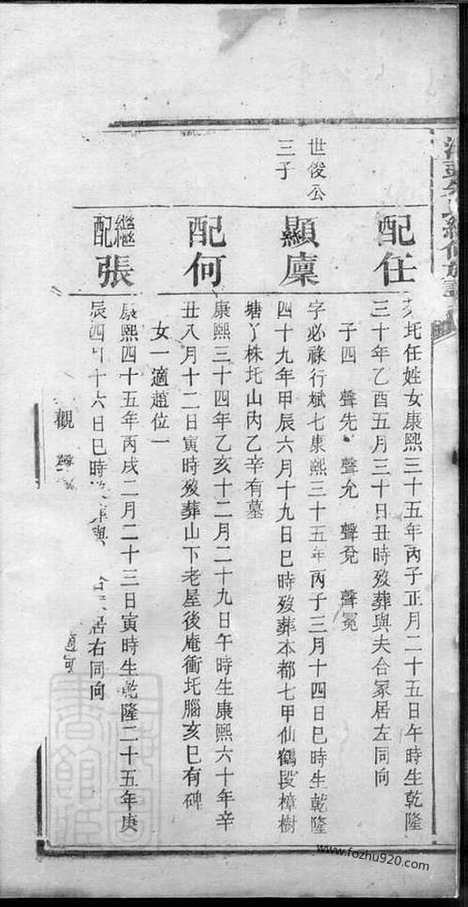 配任
圫任姓女康熙三十五年丙子正月二十五日午時生乾隆
三十年乙酉五月三十日丑時歿葬與夫合冢居左同向
子四 聲先 聲允 聲兌 聲冕
世俊公
三子
顯廩
字必祿行斌七康熙三十五年丙子三月十四日巳時生乾隆
四十九年甲辰六月十九日巳時歿葬本都七甲仙鶴叚樟樹
塘丫株圫山內乙辛有墓
配何
康熙三十四年乙亥十二月二十九日午時生康熙六十年辛
丑八月十二日寅時歿葬山下老屋後庵衝圫腦亥巳有碑
女一適趙位一
繼配張
康熙四十五年丙戌二月二十三日寅時生乾隆二十五年庚
辰四月十六日巳時 居右同向
觀
www.fozhu920.com